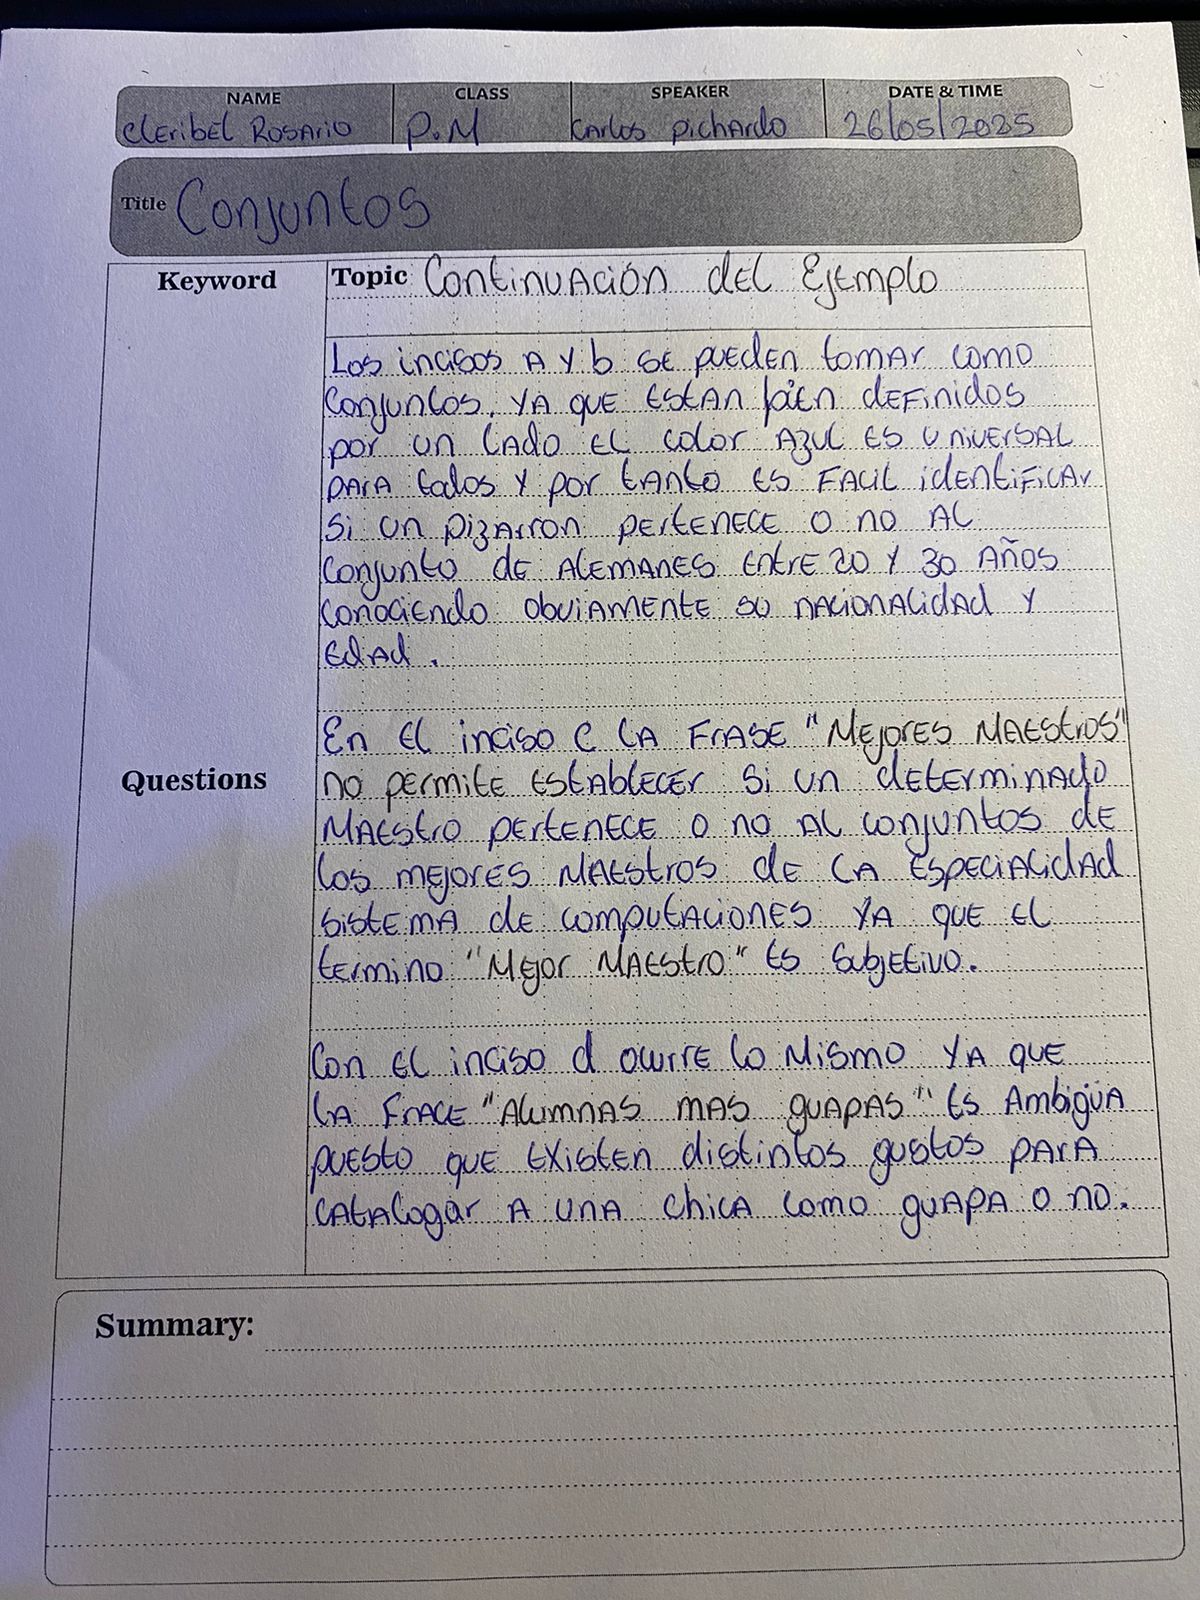 NAME CLASS SPEAKER DATE & TIME
Cleribel Rosario P.M Karlos Pichardo 26/05/2025
Title Conjuntos
Keyword
Topic Continuación del Ejemplo
Los incisos A y b se pueden tomar como
conjuntos, ya que estan bien definidos
por un lado el color azul es universal
para todos y por tanto es facil identificar
si un pizarron pertenece o no al
conjunto de alemanes entre 20 y 30 años
conociendo obviamente su nacionalidad y
edad.
Questions
En el inciso c la frase "Mejores Maestros"
no permite establecer si un determinado
maestro pertenece o no al conjuntos de
los mejores maestros de la especialidad
sistema de computaciones ya que el
termino "Mejor Maestro" es subjetivo.
Con el inciso d ocurre lo mismo ya que
la frace "Alumnas mas guapas" es ambigüa
puesto que existen distintos gustos para
catalogar a una chica como guapa o no.
Summary: